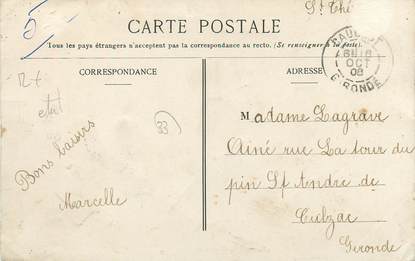 St Thé
CARTE POSTALE
Tous les pays étrangers n'acceptent pas la correspondance au recto. (Se renseigner à la poste).
CORRESPONDANCE
ADRESSE
OCT
08
GIRONDE
R+
etat
33
Bons baisers
Marcelle
Madame Lagrave
Ainé rue La tour du
pin St Andre de
Cubzac
Gironde